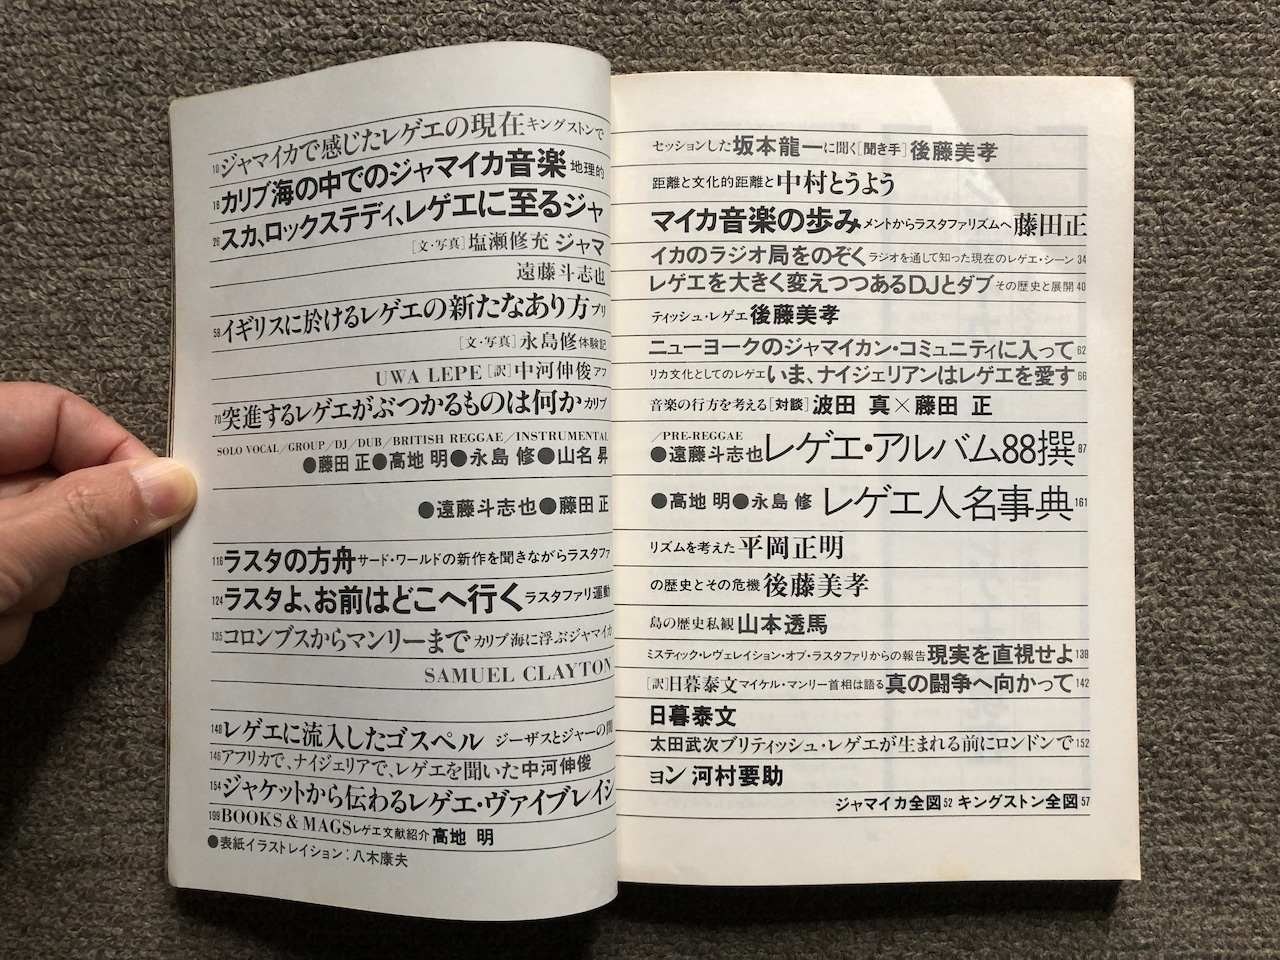 10ジャマイカで感じたレゲエの現在キングストンでセッションした坂本龍一に聞く[聞き手]後藤美孝
18カリブ海の中でのジャマイカ音楽 地理的距離と文化的距離と中村とうよう
26スカ、ロックステディ、レゲエに至るジャマイカ音楽の歩みメントからラスタファリズムへ藤田正
[文・写真]塩瀬修充 ジャマイカのラジオ局をのぞくラジオを通して知った現在のレゲエ・シーン34
遠藤斗志也 レゲエを大きく変えつつあるDJとダブその歴史と展開40
56イギリスに於けるレゲエの新たなあり方ブリティッシュ・レゲエ後藤美孝
[文・写真]永島修体験記 ニューヨークのジャマイカン・コミュニティに入って62
UWA LEPE[訳]中河伸俊アフリカ文化としてのレゲエいま、ナイジェリアンはレゲエを愛す66
70突進するレゲエがぶつかるものは何かカリブ音楽の行方を考える[対談]波田 真×藤田 正
SOLO VOCAL/GROUP/DJ/DUB/BRITISH REGGAE/INSTRUMENTAL/PRE-REGGAE
●藤田 正●高地 明●永島 修●山名 昇●遠藤斗志也レゲエ・アルバム88撰87
●遠藤斗志也●藤田 正●高地 明●永島 修 レゲエ人名事典161
116ラスタの方舟サード・ワールドの新作を聞きながらラスタファリズムを考えた平岡正明
124ラスタよ、お前はどこへ行くラスタファリ運動の歴史とその危機後藤美孝
135コロンブスからマンリーまでカリブ海に浮ぶジャマイカ島の歴史私観山本透馬
SAMUEL CLAYTON ミスティック・レヴェレイション・オブ・ラスタファリからの報告現実を直視せよ138
[訳]日暮泰文マイケル・マンリー首相は語る真の闘争へ向かって142
148レゲエに流入したゴスペル ジーザスとジャーの間 日暮泰文
146アフリカで、ナイジェリアで、レゲエを聞いた中河伸俊 太田武次ブリティッシュ・レゲエが生まれる前にロンドンで152
154ジャケットから伝わるレゲエ・ヴァイブレイション 河村要助
199BOOKS & MAGSレゲエ文献紹介高地 明 ジャマイカ全図52 キングストン全図57
●表紙イラストレイション:八木康夫